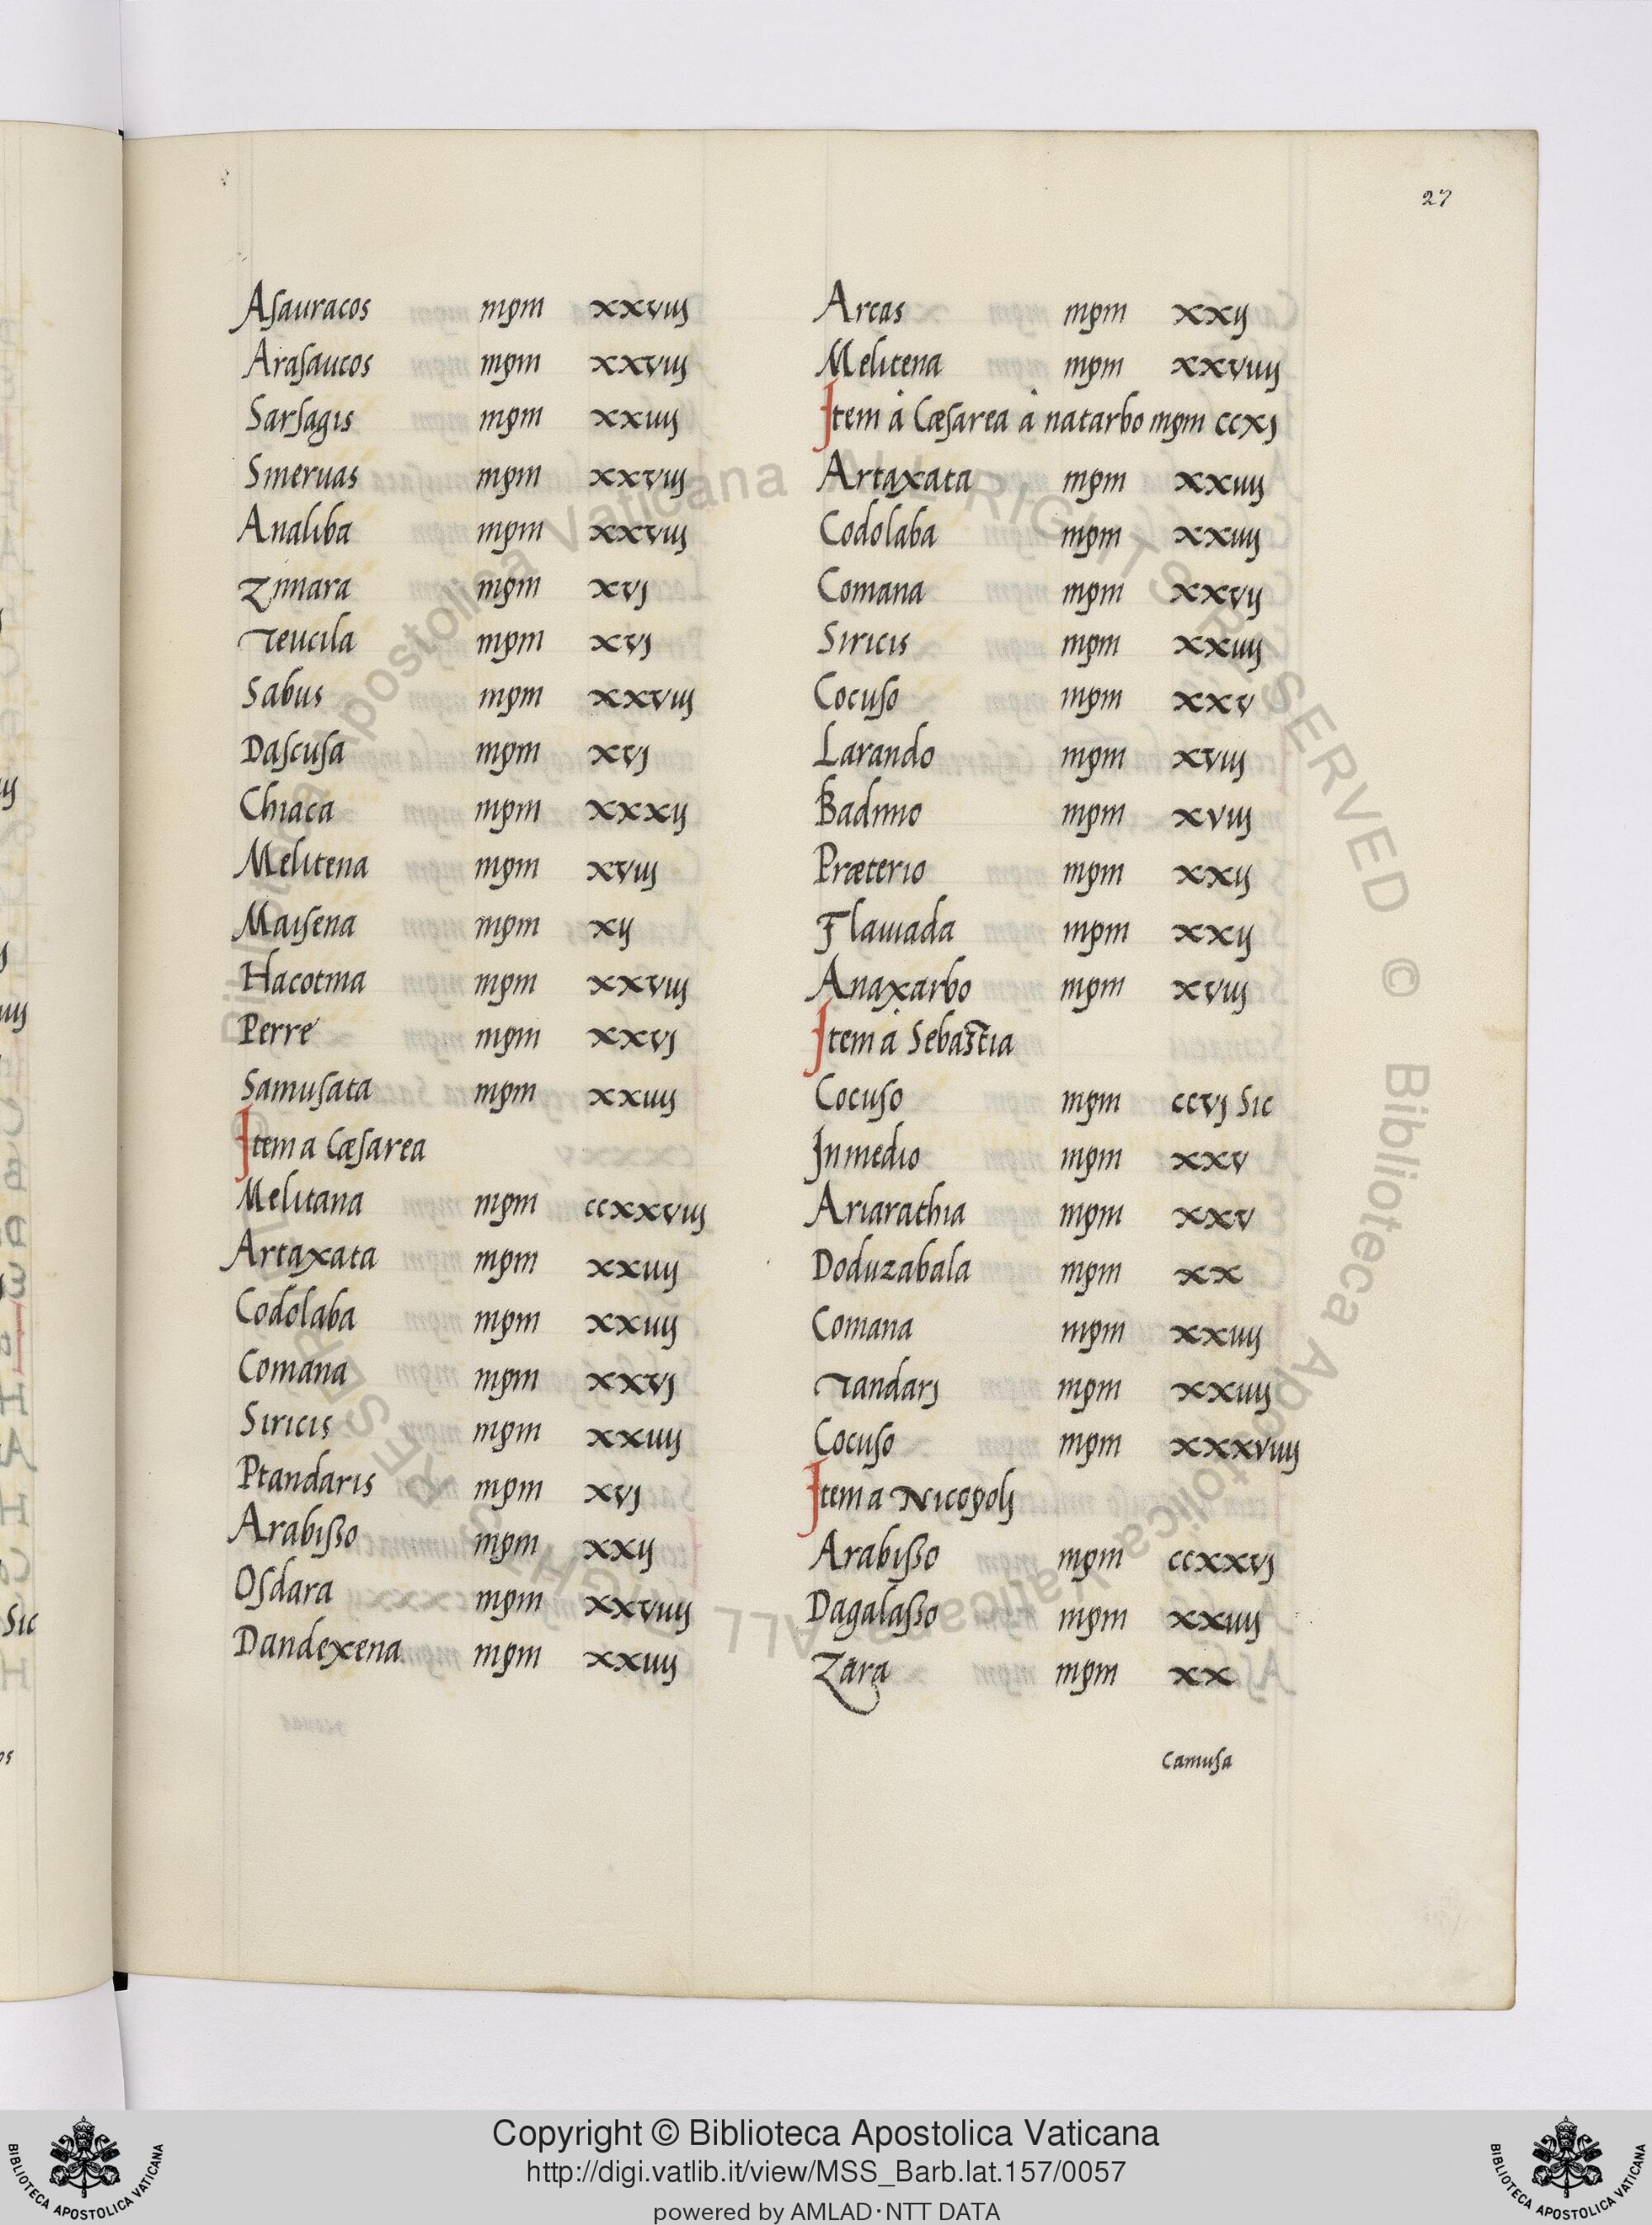 27
Asauracos mpm xxviij
Arasaucos mpm xxviij
Sarsagis mpm xxiiij
Sineruas mpm xxviij
Analiba mpm xxviij
Zinnara mpm xvj
Teucila mpm xvj
Sabus mpm xxviij
Dascusa mpm xvj
Chiaca mpm xxxij
Melitena mpm xviij
Maisena mpm xij
Hacotina mpm xxviij
Perre mpm xxvj
Samusata mpm xxiiij
Item a Cæsarea
Melitana mpm ccxxviij
Artaxata mpm xxiiij
Codolaba mpm xxiiij
Comana mpm xxvj
Siricis mpm xxiiij
Ptandaris mpm xvj
Arabisso mpm xxij
Osdara mpm xxviiij
Dandexena mpm xxiiij
Arcas mpm xxij
Melitena mpm xxviiij
Item à Cæsarea à natarbo mpm ccxj
Artaxata mpm xxiiij
Codolaba mpm xxiiij
Comana mpm xxvij
Siricis mpm xxiiij
Cocuso mpm xxv
Larando mpm xviij
Badinno mpm xviij
Præterio mpm xxij
Flauiada mpm xxij
Anaxarbo mpm xviij
Item à Sebastia
Cocuso mpm ccvj Sic
In medio mpm xxv
Ariarathia mpm xxv
Doduzabala mpm xx
Comana mpm xxiiij
Tandarj mpm xxiiij
Cocuso mpm xxxviiij
Item a Nicopolj
Arabisso mpm ccxxvj
Dagalasso mpm xxiiij
Zara mpm xx
Camusa
Copyright © Biblioteca Apostolica Vaticana
http://digi.vatlib.it/view/MSS_Barb.lat.157/0057
powered by AMLAD·NTT DATA